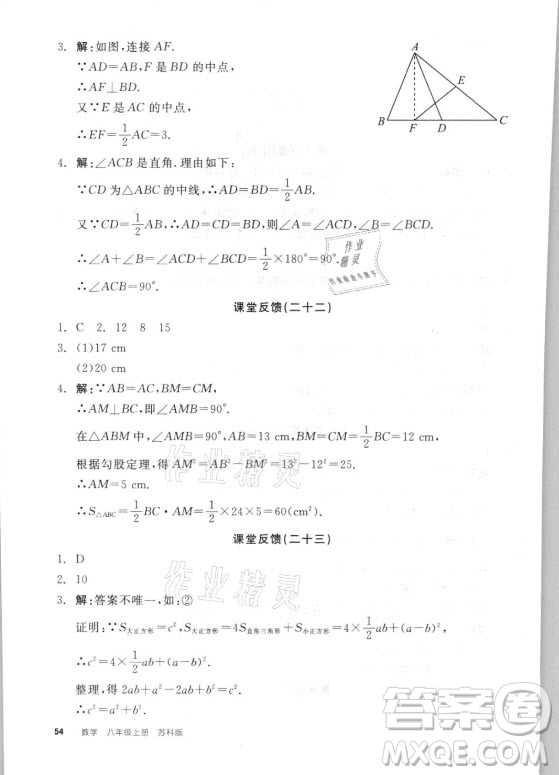 3. 解:如图,连接 AF.
∵AD=AB,F 是 BD 的中点,
∴AF⊥BD.
又∵E 是 AC 的中点,
∴EF=1/2AC=3.
A
E
B F D C
4. 解:∠ACB 是直角.理由如下:
∵CD 为△ABC 的中线,∴AD=BD=1/2AB.
又∵CD=1/2AB,∴CD=AD=BD,则∠A=∠ACD,∠B=∠BCD,
∴∠A+∠B=∠ACD+∠BCD=1/2×180°=90°.
∴∠ACB=90°.
作业
精灵
课堂反馈(二十二)
1. C 2. 12 8 15
3. (1)17 cm
(2)20 cm
4. 解:∵AB=AC,BM=CM,
∴AM⊥BC,即∠AMB=90°.
在△ABM 中,∠AMB=90°,AB=13 cm,BM=1/2BC=12 cm,
根据勾股定理,得 AM²=AB²-BM²=13²-12²=5².
∴AM=5 cm.
∴S△ABC=1/2BC·AM=1/2×24×5=60(cm²).
作业精灵
课堂反馈(二十三)
1. D
2. 10
3. 解:答案不唯一,如:②
作业精灵
证明:∵S大正方形=c²,S大正方形=4S直角三角形+S小正方形=4×1/2ab+(a-b)²,
∴c²=4×1/2ab+(a-b)².
整理,得 2ab+(a-b)²=c².
∴c²=a²+b².
54 数学 八年级上册 苏科版
答案圈
MXQE.COM